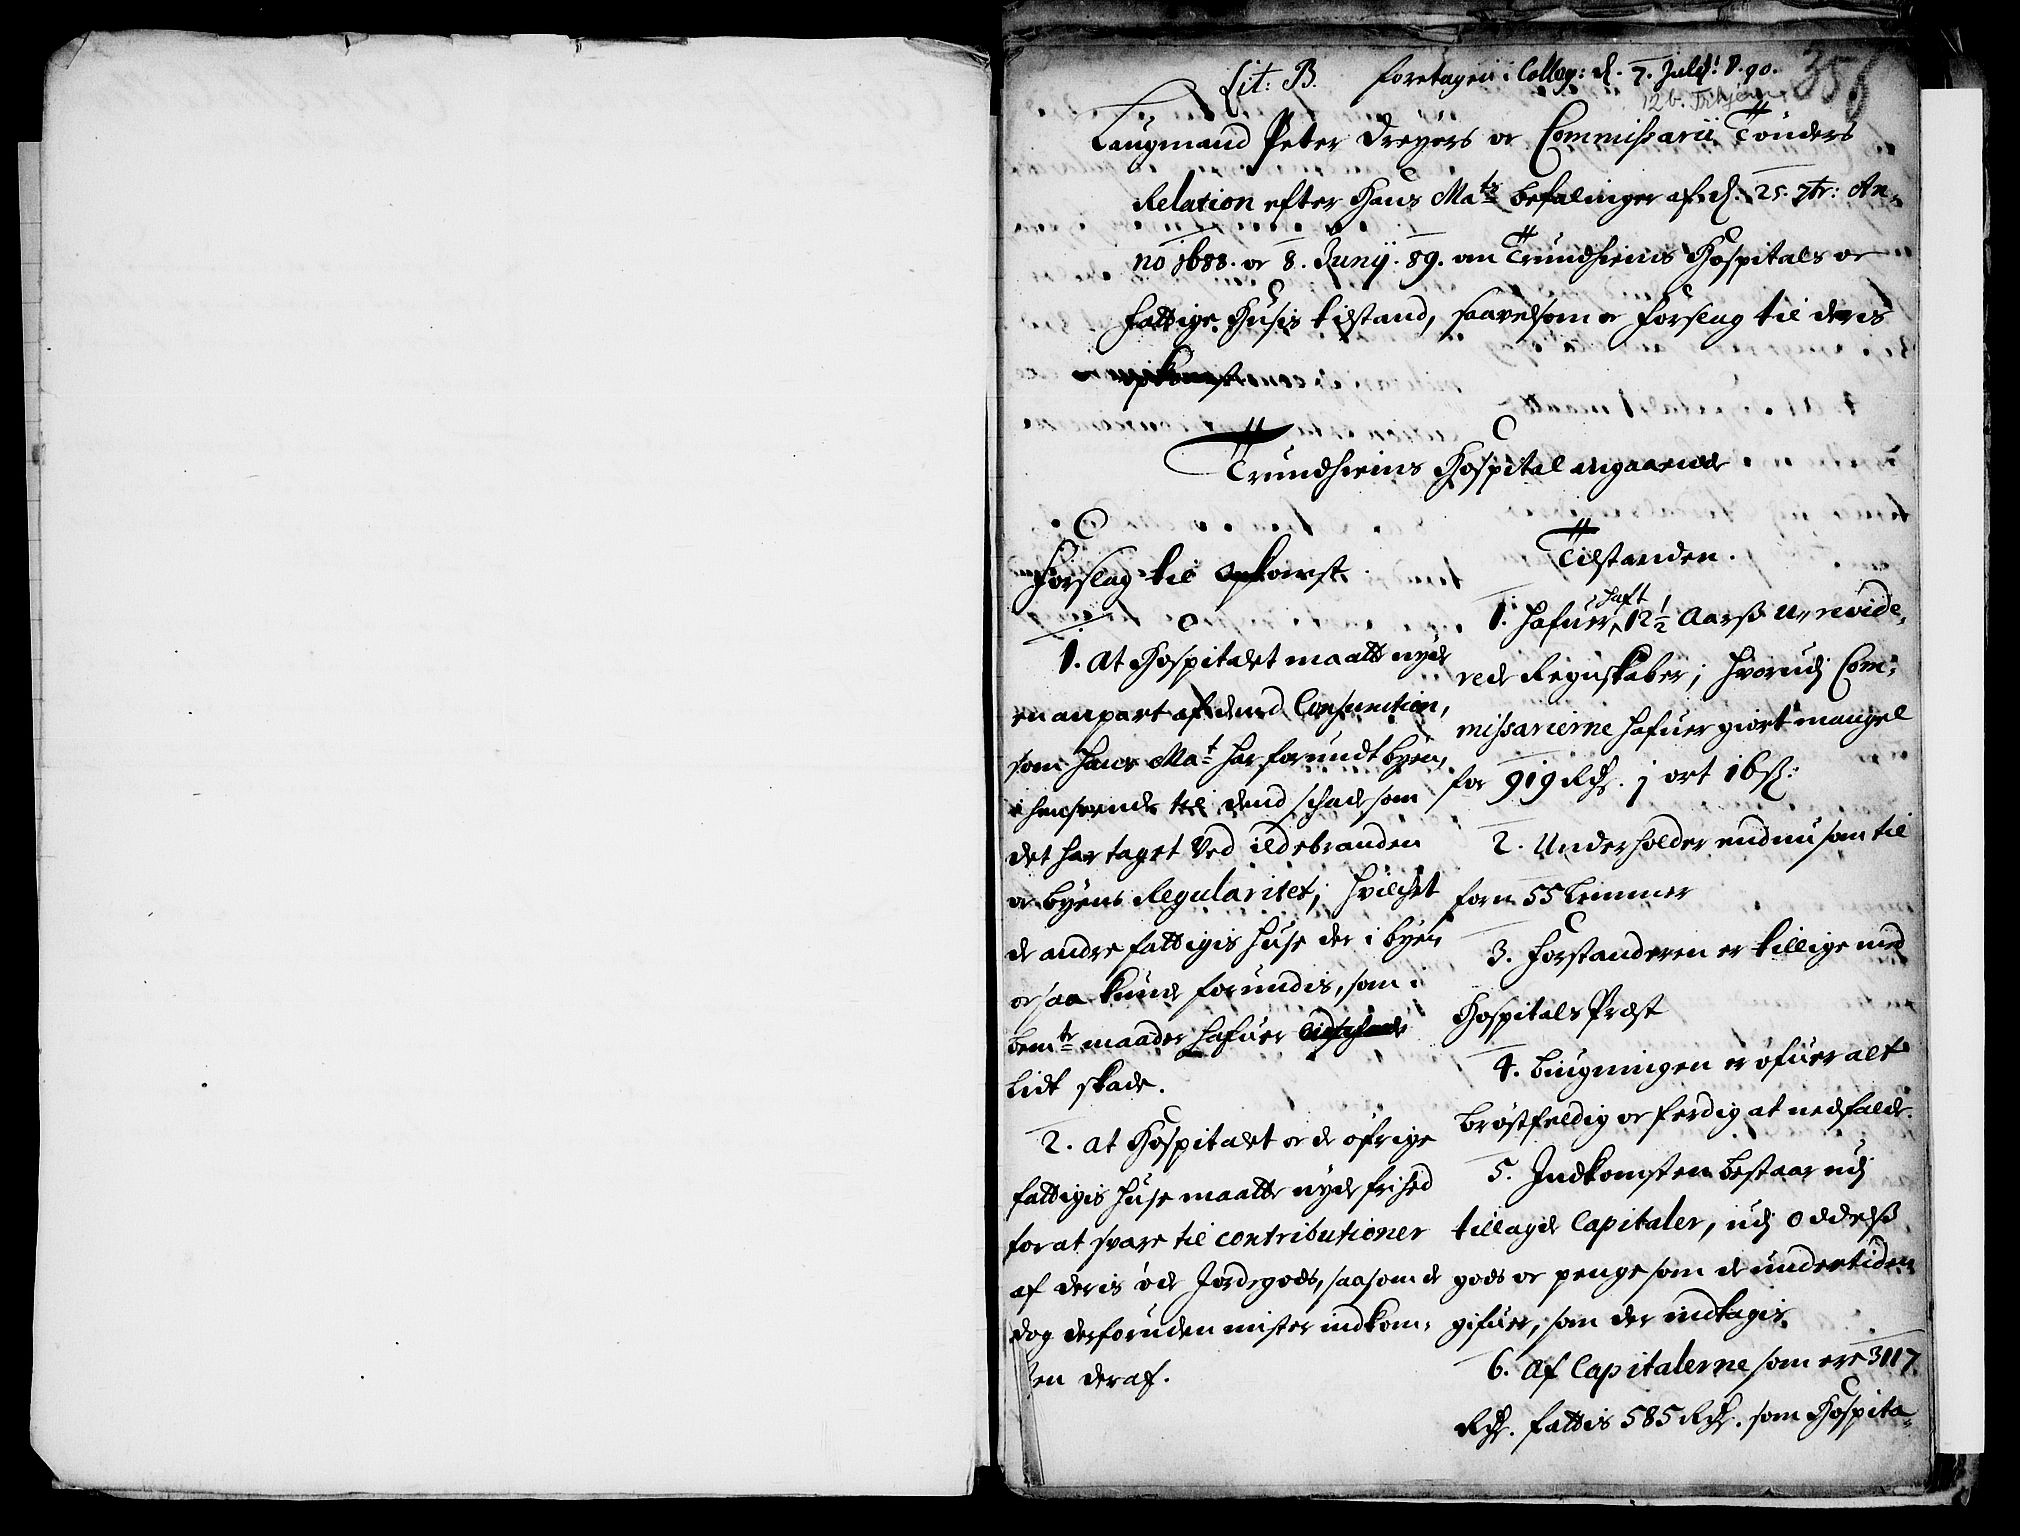 Lit: B. foretagen i Colleg: d. 7. Julÿ! A. 90.
356
12 b.
Laugmand Peter Dreyers oc Commissarii Tønders
Relation efter Hans Ma:ts befalinger af d. 25. 7br: An-
no 1688. oc 8. Junij. 89. om Trundhiems Hospitals oc
fattige Husis tilstand, saavelsom oc forslag til deris
opkomst.
Trundhiems Hospital angaaende
Forslag til opkomst.
1. At Hospitalet maatte nyde
en anpart af dend Consumtion,
som Hans Ma:t har forundt byen,
i henseende til dend schade som
det har taget Ved ildebranden
oc byens Regularitet, hvilchet
de andre fattigis Huse der i byen
oc saa kunde forundis, som i
bem:te maader hafuer
lidt skade.
2. At Hospitalet oc de øfrige
fattigis Huse maatte nyde frihed
for at svare til contributioner
af deris øde Jordegods, saasom de
dog derforuden mister indkom-
sten deraf.
Tilstanden.
1. Hafuer haft 12 1/2 Aarss U-revide-
rede Regnskaber, hvorudj Com-
missarierne hafuer giort mangel
for 919 Rdr. 1 ort 16 s:
2. Underholder endnu som til
forn 55 Lemmer
3. Forstanderen er tillige med
Hospitals Præst
4. Bingningen er ofuer alt
brøstfeldig oc ferdig at nedfalde.
5. Indkomsten bestaar udj
tillagde Capitaler, udj Oddelss
gods oc penge som de undertiden
gifuer, som der indtagis.
6. Af Capitalerne som ere 3117
Rdr. fattis 585 Rdr. som Hospita-